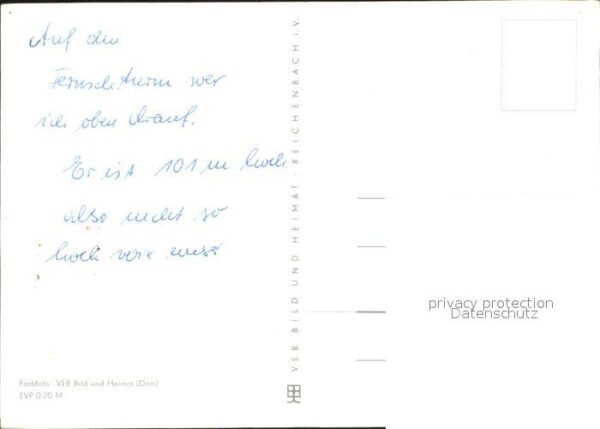 Auf den
Fernseh.turm wer
ich oben drauf.
Er ist 101 m hoch
also nicht so
hoch
VEB BILD UND HEIMAT REICHENBACH i. V.
privacy protection
Datenschutz
Farbfoto: VEB Bild und Heimat (Darr)
EVP 0.20 M